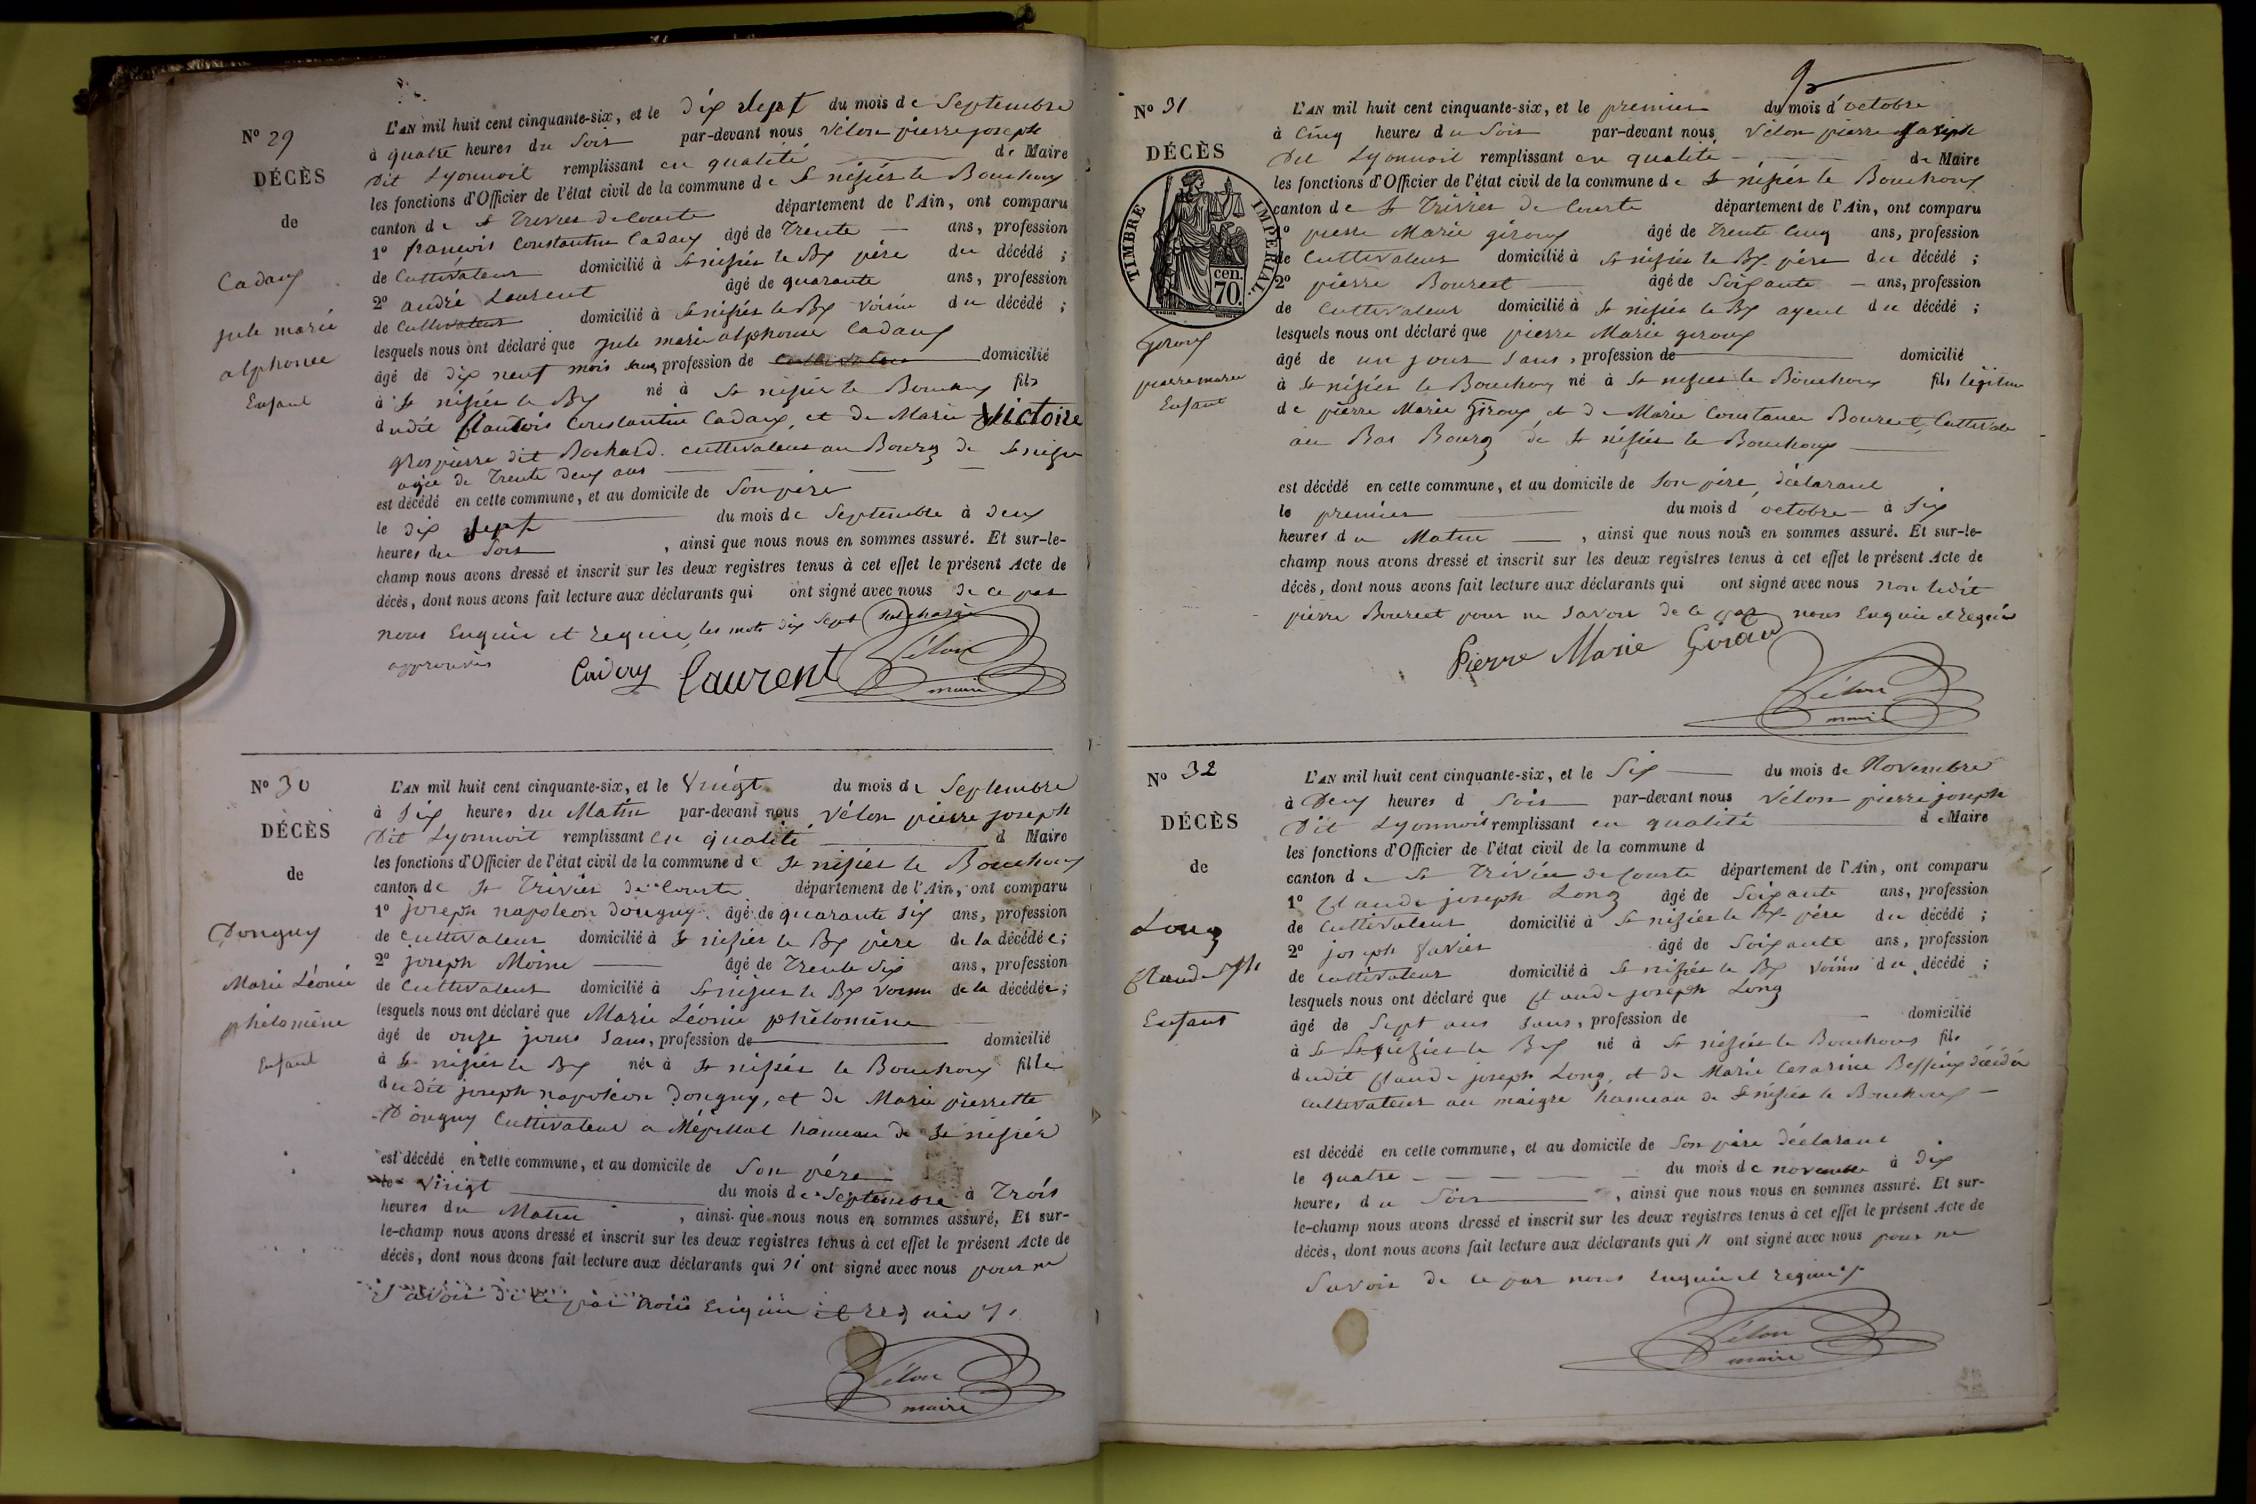 Nº 29
DÉCÈS
de
Cadoux
jule marie
alphonse
Enfant
L'AN mil huit cent cinquante-six, et le dix sept du mois de Septembre
à quatre heures du Soir par-devant nous Vélon pierre joseph
Dit Lyonnois remplissant en qualité de Maire
les fonctions d'Officier de l'état civil de la commune de St nisier le Bouchoux
canton de St Trivier de Courte département de l'Ain, ont comparu
1º françois Constantin Cadoux âgé de Trente ans, profession
de Cultivateur domicilié à St nisier le Bx père du décédé ;
2º andré Laurent âgé de quarante ans, profession
de Cultivateur domicilié à St nisier le Bx Voisin du décédé ;
lesquels nous ont déclaré que jule marie alphonse Cadoux
âgé de dix neuf mois sans profession de domicilié
à St nisier le Bx né à St nisier le Bouchoux fils
dudit françois Constantin Cadoux, et de Marie Victoire
Grospierre dit Bochard. cultivateur au Bourg de St nisier
agée de Trente deux ans
est décédé en cette commune, et au domicile de Son père
le dix sept du mois de Septembre à deux
heures du Soir , ainsi que nous nous en sommes assuré. Et sur-le-
champ nous avons dressé et inscrit sur les deux registres tenus à cet effet le présent Acte de
décès, dont nous avons fait lecture aux déclarants qui ont signé avec nous de ce par
nous Enquis et requis, les mots dix Sept surchargés
approuvés
Cadoux Laurent Vélon
maire
Nº 30
DÉCÈS
de
Donguy
Marie Léonie
phélomène
Enfant
L'AN mil huit cent cinquante-six, et le Vingt du mois de Septembre
à Six heures du Matin par-devant nous Vélon pierre joseph
Dit Lyonnoit remplissant en qualité d Maire
les fonctions d'Officier de l'état civil de la commune de St nisier le Bouchoux
canton de St Trivier de Courte département de l'Ain, ont comparu
1º joseph napoleon donguy âgé de quarante Six ans, profession
de Cultivateur domicilié à St nisier le Bx père de la décédée ;
2º joseph Moine âgé de Trente Six ans, profession
de Cultivateur domicilié à St nisier le Bx Voisin de la décédée ;
lesquels nous ont déclaré que Marie Léonie phélomène
âgé de onze jours Sans, profession de domicilié
à St nisier le Bx née à St nisier le Bouchoux fille
dudit joseph napoléon Donguy, et de Marie pierrette
Donguy Cultivateur a Mépillat hameau de St nisier
est décédé en cette commune, et au domicile de Son père
le vingt du mois de Septembre à Trois
heures du Matin , ainsi que nous nous en sommes assuré, Et sur-
le-champ nous avons dressé et inscrit sur les deux registres tenus à cet effet le présent Acte de
décès, dont nous avons fait lecture aux déclarants qui n' ont signé avec nous pour ne
Savoir de ce par nous Enquis et requis
Vélon
maire
Nº 31
DÉCÈS
TIMBRE IMPERIAL
cen.
70.
Giroux
pierre marie
Enfant
L'AN mil huit cent cinquante-six, et le premier du mois d'octobre
à Cinq heures du Soir par-devant nous Vélon pierre joseph
Dit Lyonnoit remplissant en qualité de Maire
les fonctions d'Officier de l'état civil de la commune de St nisier le Bouchoux
canton de St Trivier de Courte département de l'Ain, ont comparu
1º pierre Marie giroux âgé de Trente Cinq ans, profession
de Cultivateur domicilié à St nisier le Bx père du décédé ;
2º pierre Bourcet âgé de Soixante ans, profession
de Cultivateur domicilié à St nisier le Bx ayeul du décédé ;
lesquels nous ont déclaré que pierre Marie giroux
âgé de un jour Sans, profession de domicilié
à St nisier le Bouchoux né à St nisier le Bouchoux fils légitime
de pierre Marie Giroux, et de Marie Constance Bourcet, Cultivateur
au Bas Bourg de St nisier le Bouchoux
est décédé en cette commune, et au domicile de Son père, déclarant
le premier du mois d octobre à Six
heures du Matin , ainsi que nous nous en sommes assuré. Et sur-le-
champ nous avons dressé et inscrit sur les deux registres tenus à cet effet le présent Acte de
décès, dont nous avons fait lecture aux déclarants qui ont signé avec nous non ledit
pierre Bourcet pour ne Savoir de ce par nous Enquis et requis
Pierre Marie Giroux
Vélon
maire
Nº 32
DÉCÈS
de
Long
Claude Jph
Enfant
L'AN mil huit cent cinquante-six, et le Six du mois de Novembre
à Deux heures d Soir par-devant nous Vélon pierre joseph
Dit Lyonnois remplissant en qualité de Maire
les fonctions d'Officier de l'état civil de la commune d
canton de St Trivier de Courte département de l'Ain, ont comparu
1º Claude joseph Long âgé de Soixante ans, profession
de Cultivateur domicilié à St nisier le Bx père du décédé ;
2º joseph âgé de Soixante ans, profession
de Cultivateur domicilié à St nisier le Bx Voisin du décédé ;
lesquels nous ont déclaré que Claude joseph Long
âgé de Sept ans Sans, profession de domicilié
à St nisier le Bx né à St nisier le Bouchoux fils
dudit Claude joseph Long, et de Marie Cesarine décédée
Cultivateur au maigre hameau de St nisier le Bouchoux
est décédé en cette commune, et au domicile de Son père déclarant
le quatre du mois de novembre à Dix
heures du Soir , ainsi que nous nous en sommes assuré. Et sur-
le-champ nous avons dressé et inscrit sur les deux registres tenus à cet effet le présent Acte de
décès, dont nous avons fait lecture aux déclarants qui n ont signé avec nous pour ne
Savoir de ce par nous Enquis et requis
Vélon
maire